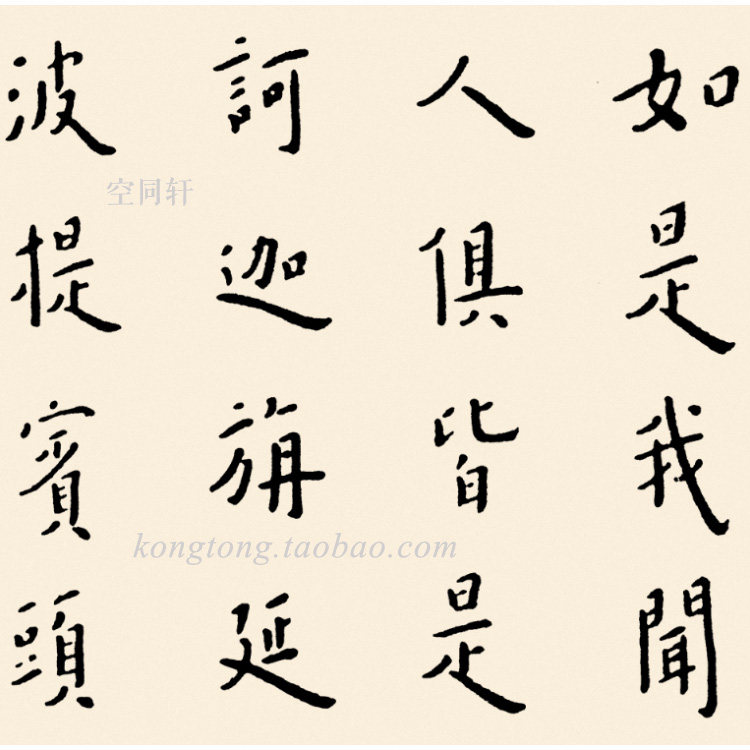 如是我聞
人俱皆是
訶迦旃延
波提賓頭
空同轩
kongtong.taobao.com